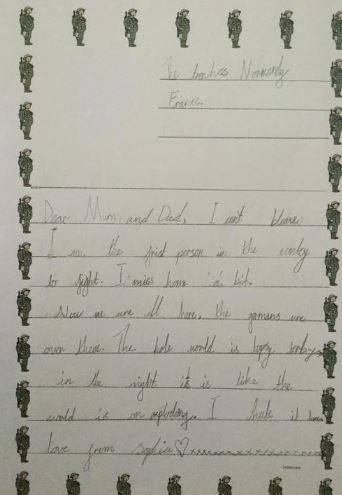 The trenches Normandy
France.
Dear Mum and Dad, I cant
I am the first person in the
to fight. I miss home a bit.
Now we are all here, the germans are
over there. The hole world is
in the night it is like the
world is on exploding. I hate it
love from sophia♡xxxxxxxxxxxxxxxx